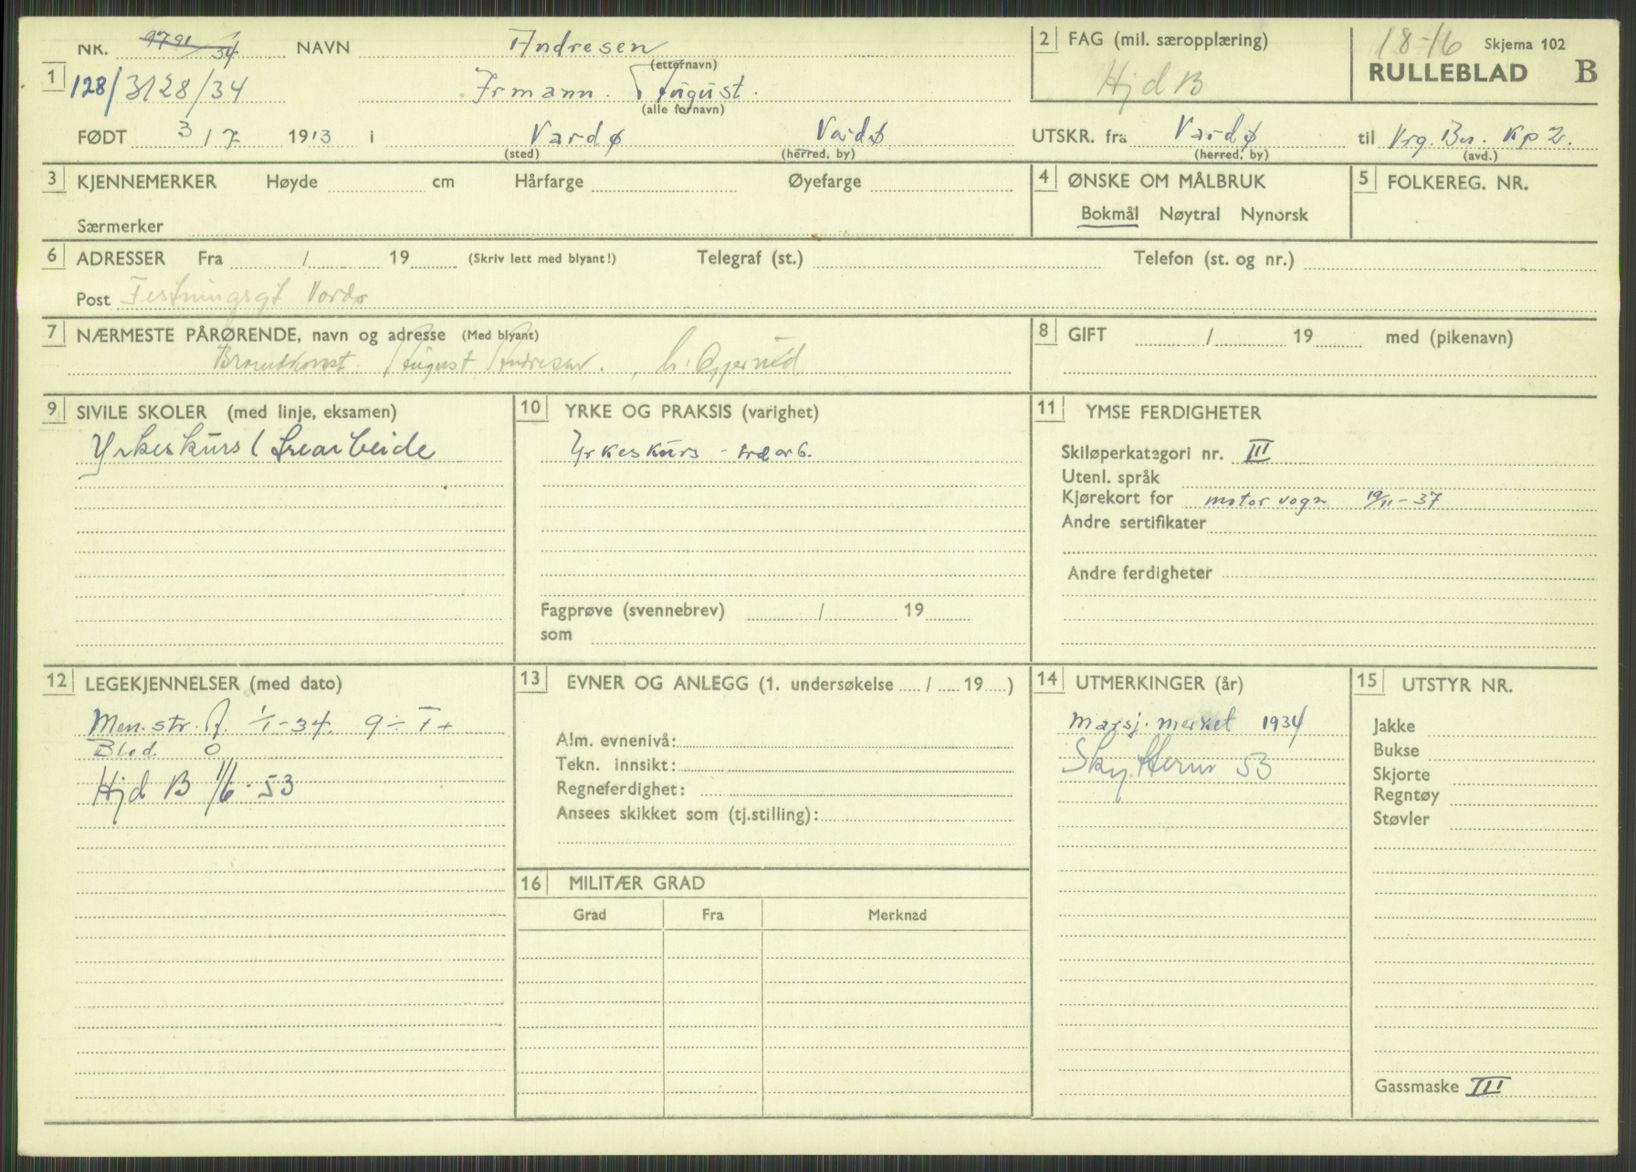 NK. NAVN Andresen
(etternavn)
1 128/3128/34 Irmann. August.
(alle fornavn)
FØDT 3 / 7 1913 i Vardø Vardø
(sted) (herred, by)
2 FAG (mil. særopplæring)
Hjd B
18-16 Skjema 102
RULLEBLAD B
UTSKR. fra Vardø til Vrg. Bn. Kp 2.
(herred, by) (avd.)
3 KJENNEMERKER Høyde cm Hårfarge Øyefarge
Særmerker
4 ØNSKE OM MÅLBRUK
Bokmål Nøytral Nynorsk
5 FOLKEREG. NR.
6 ADRESSER Fra / 19 (Skriv lett med blyant!) Telegraf (st.) Telefon (st. og nr.)
Post Festningsgt Vardø
7 NÆRMESTE PÅRØRENDE, navn og adresse (Med blyant)
August Andresen.
8 GIFT / 19 med (pikenavn)
9 SIVILE SKOLER (med linje, eksamen)
Yrkeskurs i trearbeide
10 YRKE OG PRAKSIS (varighet)
Yrkeskurs - trearb.
Fagprøve (svennebrev) / 19
som
11 YMSE FERDIGHETER
Skiløperkategori nr. III
Utenl. språk
Kjørekort for motorvogn 19/11-37
Andre sertifikater
Andre ferdigheter
12 LEGEKJENNELSER (med dato)
Men. str. A. 1/1-34. 9 ÷ I +
Blod. O
Hjd B 1/6-53
13 EVNER OG ANLEGG (1. undersøkelse / 19 )
Alm. evnenivå:
Tekn. innsikt:
Regneferdighet:
Ansees skikket som (tj.stilling):
14 UTMERKINGER (år)
Marsj. merket 1934
53
15 UTSTYR NR.
Jakke
Bukse
Skjorte
Regntøy
Støvler
Gassmaske III
16 MILITÆR GRAD
Grad Fra Merknad